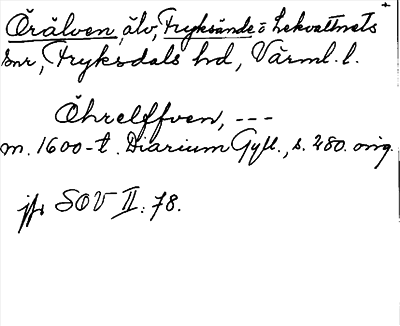 Örälven, älv, Fryksände o Lekvattnets
snr, Fryksdals hd, Värml. l.
Öhrelffven, ---
m. 1600-t. Diarium Gyll., s. 280. orig.
jfr SOV II: 78.